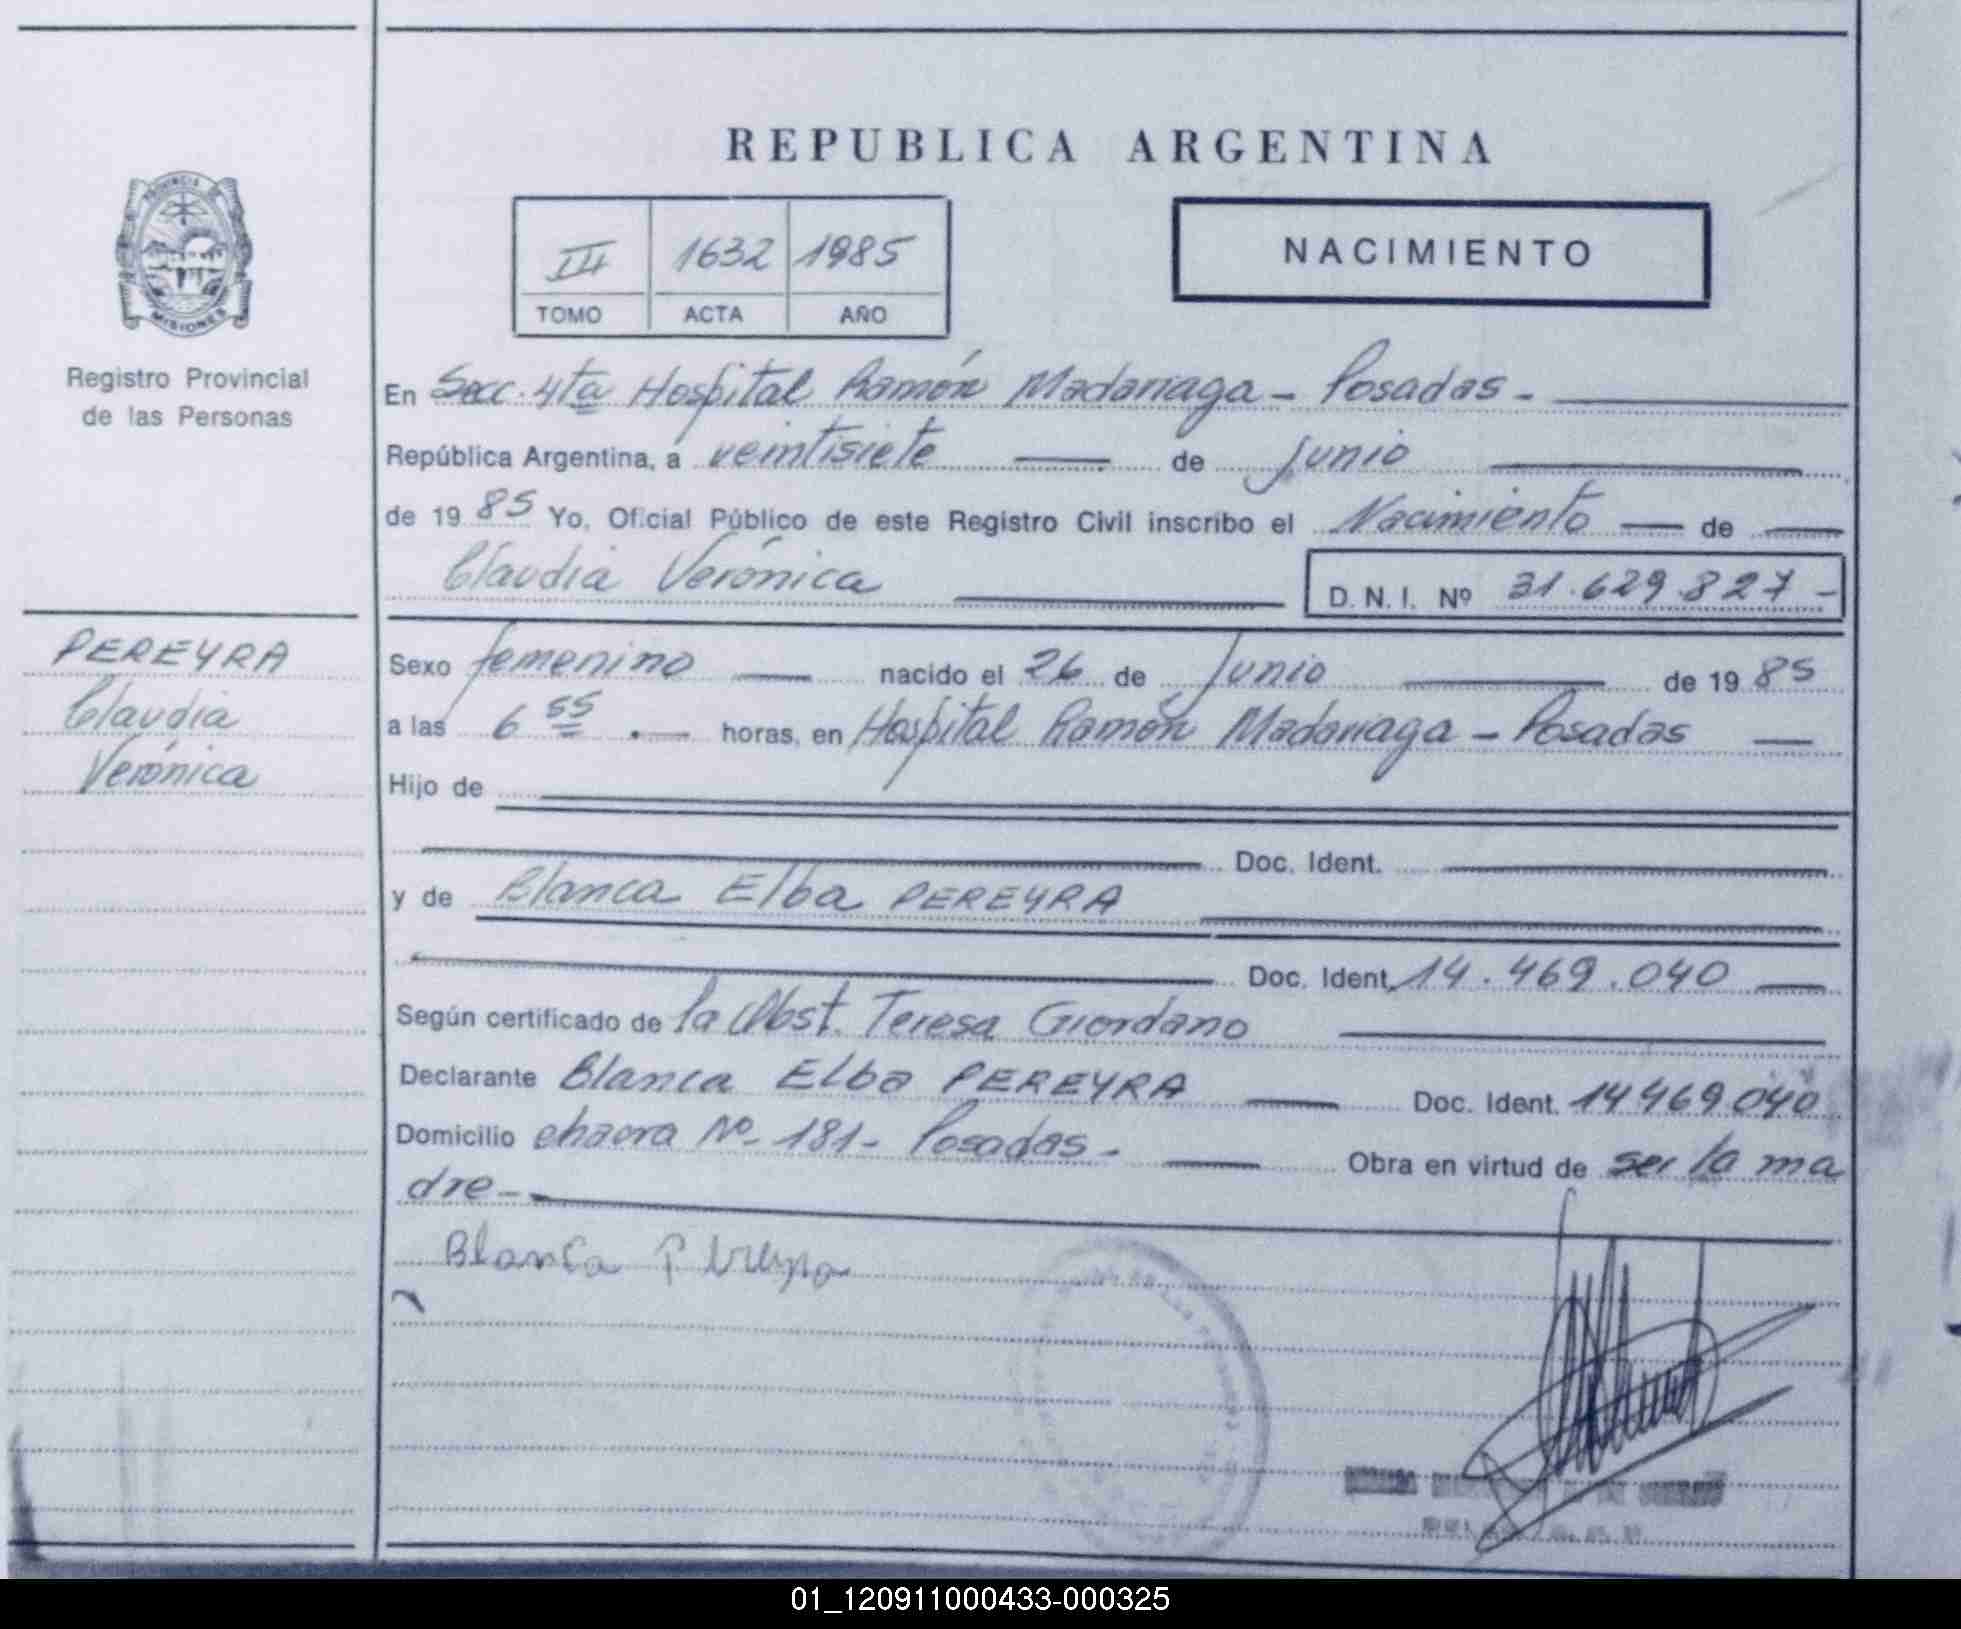 REPUBLICA ARGENTINA
PROVINCIA
MISIONES
Registro Provincial
de las Personas
III 1632 1985
TOMO ACTA AÑO
NACIMIENTO
En Secc. 4ta Hospital Ramón Madariaga - Posadas -
República Argentina, a veintisiete de junio
de 1985 Yo, Oficial Público de este Registro Civil inscribo el Nacimiento de
Claudia Verónica D. N. I. Nº 31.629.827-
PEREYRA
Claudia
Verónica
Sexo femenino nacido el 26 de Junio de 1985
a las 6 55 horas, en Hospital Ramón Madariaga - Posadas
Hijo de
Doc. Ident.
y de Blanca Elba PEREYRA
Doc. Ident. 14.469.040
Según certificado de la Obst. Teresa Giordano
Declarante Blanca Elba PEREYRA Doc. Ident. 14469040
Domicilio chacra Nº- 181- Posadas - Obra en virtud de ser la ma
dre -
Blanca Pereyra
01_120911000433-000325